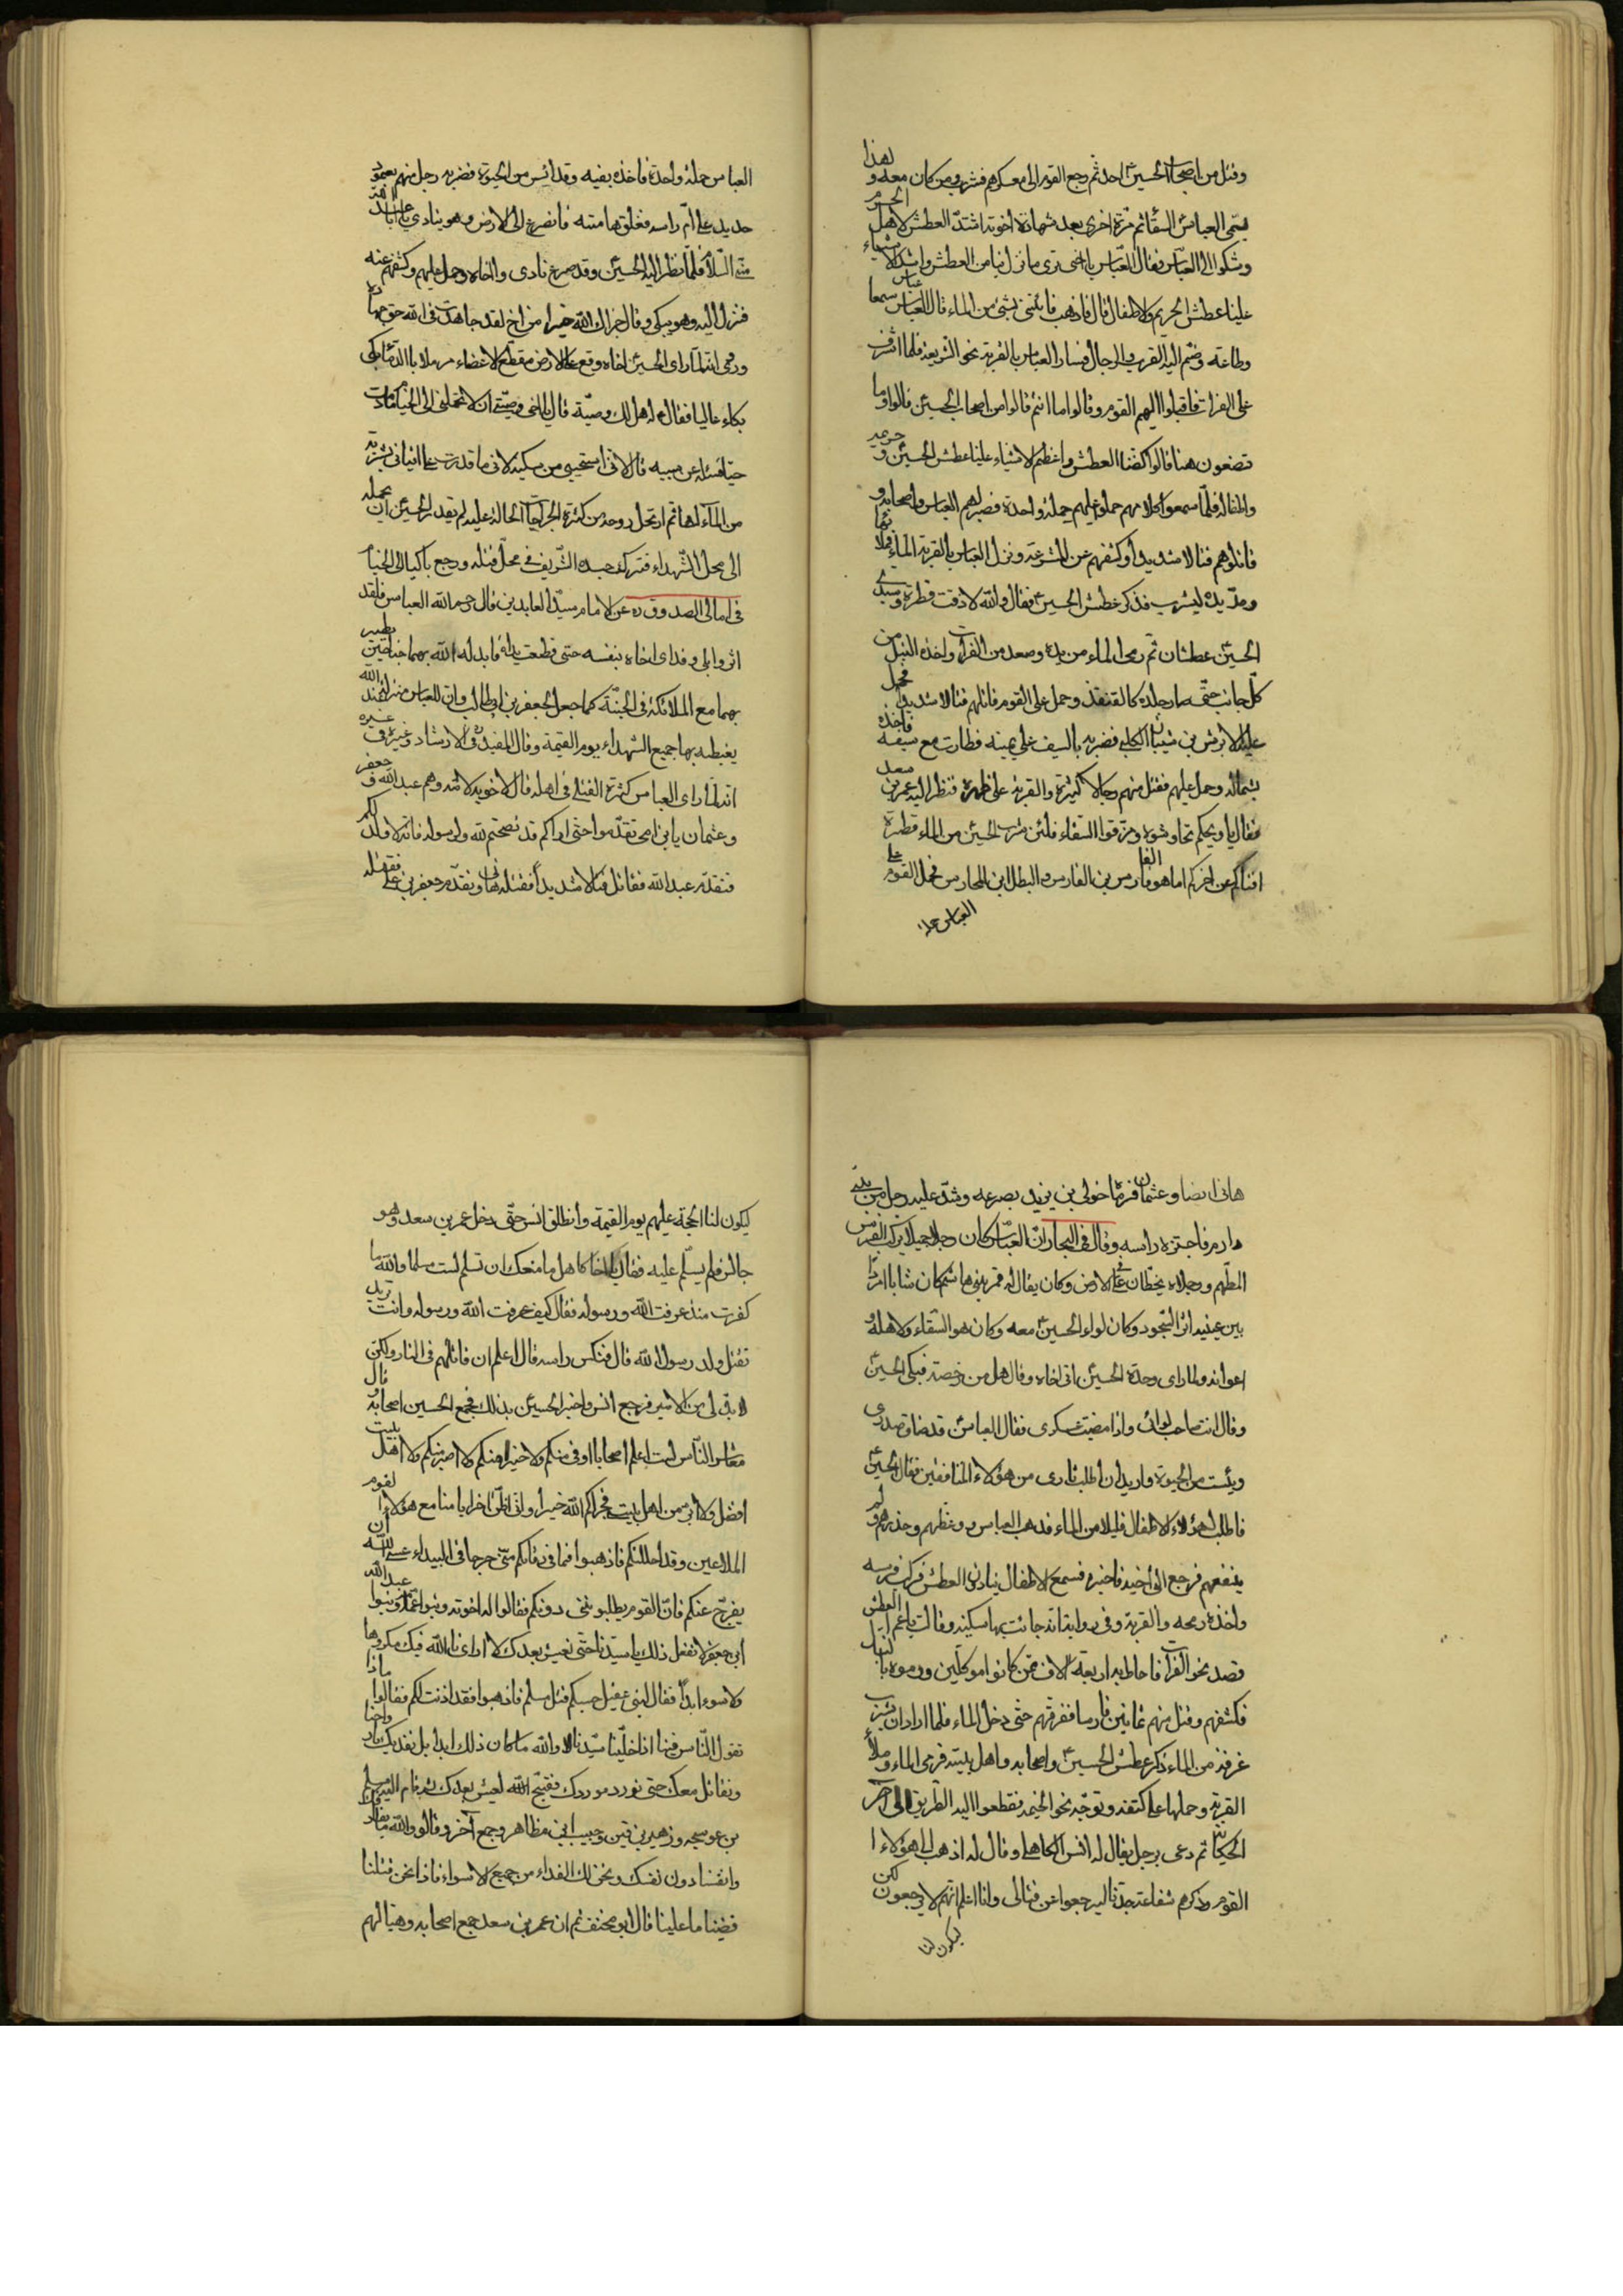 وقتل من اصحاب الحسين احد ثم رجع القوم الى معسكرهم فشرب ومن كان معه ولهذا
يسمى العباس السقا ثم مرة اخرى بعد شهادة اخوته اشتد العطش لاهل الحرم
وشكوا الى العباس فقال العباس يا اخى ترى ما نزل بنا من العطش واشد الاشياء
علينا عطش الحريم والاطفال قال فاذهب فأتنى بشئ من الماء قال العباس سمعا
وطاعة وضم اليه القرب والرجال فسار العباس بالقربة نحو الشريعة فلما اشرف
على الفرات فاقبلوا اليهم القوم وقالوا ما انتم قالوا من اصحاب الحسين قالوا وما
تصنعون هنا قالوا كضنا العطش واعظم الاشياء علينا عطش الحسين و حرمه
واطفاله فلما سمعوا كلامهم حملوا عليهم حملة واحدة فصبر لهم العباس واصحابه و
قاتلوهم قتالا شديدا وكشفهم عن المشرعة ونزل العباس بالقربة الماء فملأها
ومد يده ليشرب فذكر عطش الحسين فقال والله لا ذقت قطرة وسيدى
الحسين عطشان ثم رمى الماء من يده وصعد من الفرات واخذه النبل من
كل جانب حتى صار جلده كالقنفذ وحمل على القوم قاتلهم قتالا شديدا فحمل
عليه الابرش بن شيبان الكلبى فضربه بالسيف على يمينه فطارت مع سيفه فاخذه
بشماله وحمل عليهم فقتل منهم رجالا كثيرة والقربة على ظهره فنظر اليه عمر بن سعد
فقال يا ويحكم تحاوشوه ومزقوا السقاء فلئن شرب الحسين من الماء قطرة
افناكم عن اخركم اما هو الفارس بن الفارس والبطل ابن المحارس فحمل القوم على
العباس حملة
العباس حملة واحدة فاخذه بفيه وقد ايس من الحيوة فضربه رجل منهم بعمود
حديد على ام راسه ففلق هامته فانصرع الى الارض وهو ينادى يا ابا عبد الله
منى السلام فلما نظر اليه الحسين وقد صرع نادى وا اخاه وحمل عليهم وكشفهم عنه
فنزل اليه وهو يبكى وقال جزاك الله خيرا من اخ لقد جاهدت فى الله حق جهاده
وروى انه لما راى الحسين اخاه وقع على الارض مقطع الاعضاء مرملا بالدماء بكى
بكاء عاليا فقال هل لك وصية قال يا اخى وصيتى ان لا تحملنى الى الخيام مادمت
حيا فسئله عن سببه قال لانى استحيى من سكينة لانى ما قدرت على اتيانى بشربة
من الماء لها ثم ارتحل روحه من كثرة الجراحات الحالة عليه لم يقدر الحسين ان يحمله
الى محل الشهداء فترك جسده الشريف فى محل قتله ورجع باكيا الى الخيام
فى امالى الصدوق ره عن الامام سيد العابدين قال رحم الله العباس فلقد
اثر وابلى وفدى اخاه بنفسه حتى قطعت يداه فابدله الله بهما جناحين يطير
بهما مع الملائكة فى الجنة كما جعل لجعفر بن ابى طالب وان للعباس منزلة عند الله
يغبطه بها جميع الشهداء يوم القيمة وقال المفيد ره فى الارشاد وغيره فى غيره
انه لما راى العباس كثرة القتلى فى اهله قال لاخوته لامه وهم عبد الله و جعفر
وعثمان يا بنى امى تقدموا حتى اراكم قد نصحتم لله ولرسوله فانه لا ولد لكم
فتقدم عبد الله فقاتل قتالا شديدا فقتله هانى وتقدم جعفر بن على فقتله
هانى ايضا وعثمان فرماه خولى بن يزيد بصرعه وشد عليه رجل من بنى
دارم فاجتز راسه وقال فى البحار ان العباس كان رجلا جميلا يركب الفرس
المطهم ورجلاه يخطان على الارض وكان يقال له قمر بنى هاشم كان شابا امردا
بين عينيه اثر السجود وكان لواء الحسين معه وكان هو السقاء ولاهله و
اعوانه ولما راى وحدة الحسين اتى اخاه وقال هل من رخصة فبكى الحسين
وقال انت صاحب لوائى واذا مضيت عسكرى فقال العباس قد ضاق صدرى
ويئست من الحيوة واريد ان اطلب ثارى من هؤلاء المنافقين فقال الحسين
فاطلب لهؤلاء الاطفال قليلا من الماء فذهب العباس و وعظهم وحذرهم و لم
ينفعهم فرجع الى اخيه فاخبره فسمع الاطفال ينادون العطش فركب فرسه
واخذ رمحه والقربة وفى رواية انه جائت بها سكينة وقالت يا عم العطش
قصد نحو الفرات فاحاط به اربعة الاف ممن كانوا موكلين ورموه بالنبال
فكشفهم وقتل منهم ثمانين فارسا ففرقهم حتى دخل الماء فلما اراد ان يشرب
غرفة من الماء ذكر عطش الحسين واصحابه واهل بيته فرمى الماء وملأ
القربة وحملها على كتفه وتوجه نحو الخيمة فقطعوا اليه الطريق الى اخر
الحكاية ثم دعى برجل يقال له انس الكاهلى وقال له اذهب الى هؤلاء
القوم وذكرهم شفاعة جدنا ليرجعوا عن قتالى وانا اعلم انهم لا يرجعون لكن
ليكون لنا
ليكون لنا الحجة عليهم يوم القيمة وانطلق انس حتى دخل عمر بن سعد وهو
جالس فلم يسلم عليه فقال يا اخا كاهل ما منعك ان تسلم لست مسلما والله ما
كفرت منذ عرفت الله ورسوله فقال كيف عرفت الله ورسوله وانت تريد
تقتل ولد رسول الله قال فنكس راسه قال اعلم ان قاتلهم فى النار ولكن
لا بد لى من الامير فرجع انس واخبر الحسين بذلك فجمع الحسين اصحابه و قال
معاشر الناس لست اعلم اصحابا اوفى منكم ولا خيرا منكم ولا اصبر منكم ولا اهل بيت
افضل ولا ابر من اهل بيتى فجزاكم الله خيرا وانى اظن اخر ايامنا مع هؤلاء القوم
الملاعين وقد احللتكم فاذهبوا فما فى رقابكم منى حرجا فى البيداء عسى الله ان
يفرج عنكم فان القوم يطلبوننى دونكم فقالوا له اخوته وبنوا عمه وبنوا عبد الله
ابن جعفر لا نفعل ذلك يا سيدنا حتى نعيش بعدك لا ارانا الله فيك مكروها
ولا سوء ابدا فقال لبنى عقيل حسبكم قتل مسلم فاذهبوا فقد اذنت لكم فقالوا ماذا
نقول الناس فينا اذا خلينا سيدنا لا والله ما كان ذلك ابدا بل نفديك
ونقاتل معك حتى نورد موردك فقبح الله لعيش بعدك ثم قام اليه مسلم
بن عوسجه وزهير بن قين وحبيب ابن مظاهر وجمع اخر وقالوا والله
وانفسنا دون نفسك ونحن لك الفداء من جميع الاسواء فاذا نحن قتلنا
قضينا ما علينا قال ابو مخنف ثم ان عمر بن سعد جمع اصحابه وهيألهم